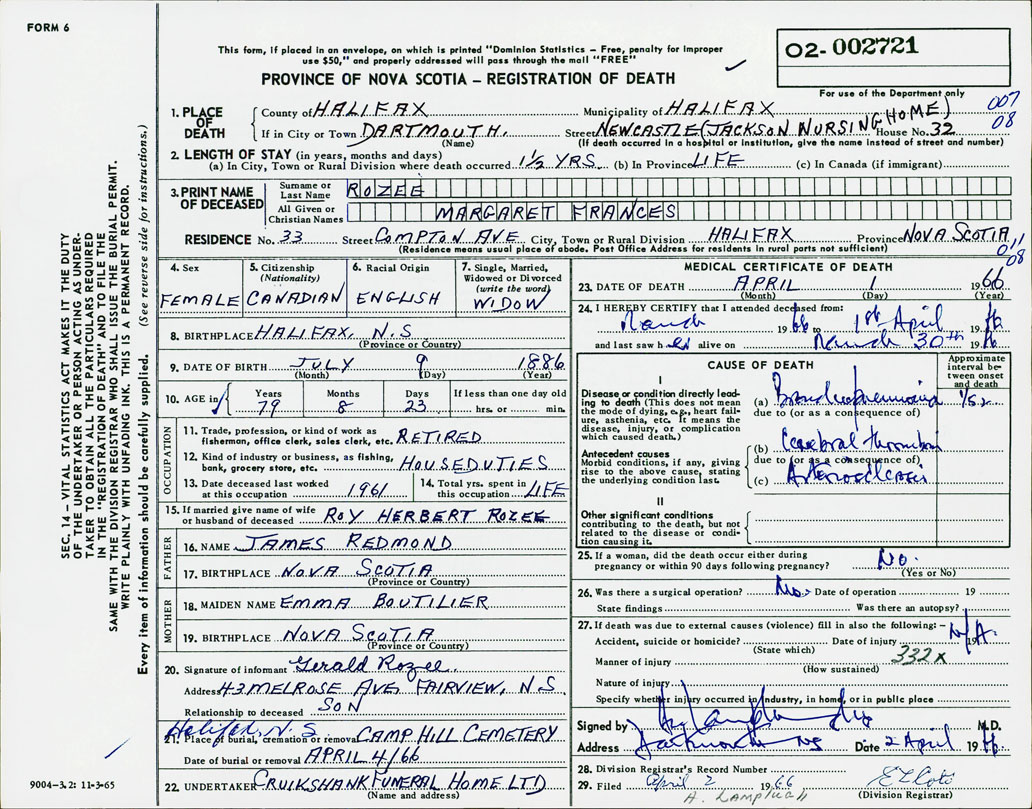 FORM 6
This form, if placed in an envelope, on which is printed "Dominion Statistics – Free, penalty for improper
use $50," and properly addressed will pass through the mail "FREE"
02-002721
PROVINCE OF NOVA SCOTIA – REGISTRATION OF DEATH
For use of the Department only
007
08
1. PLACE OF DEATH
County of HALIFAX Municipality of HALIFAX
If in City or Town DARTMOUTH. Street NEWCASTLE (JACKSON NURSING HOME) House No. 32
(Name) (If death occurred in a hospital or institution, give the name instead of street and number)
2. LENGTH OF STAY (in years, months and days)
(a) In City, Town or Rural Division where death occurred 1½ YRS. (b) In Province LIFE (c) In Canada (if immigrant)
3. PRINT NAME OF DECEASED
Surname or Last Name ROZEE
All Given or Christian Names MARGARET FRANCES
RESIDENCE No. 33 Street COMPTON AVE City, Town or Rural Division HALIFAX Province NOVA SCOTIA
(Residence means usual place of abode. Post Office Address for residents in rural parts not sufficient)
08
4. Sex FEMALE
5. Citizenship (Nationality) CANADIAN
6. Racial Origin ENGLISH
7. Single, Married, Widowed or Divorced (write the word) WIDOW
8. BIRTHPLACE HALIFAX, N.S
(Province or Country)
9. DATE OF BIRTH JULY 9 1886
(Month) (Day) (Year)
10. AGE in Years 79 Months 8 Days 23 If less than one day old hrs. or min.
OCCUPATION
11. Trade, profession, or kind of work as
fisherman, office clerk, sales clerk, etc. RETIRED
12. Kind of industry or business, as fishing,
bank, grocery store, etc. HOUSEDUTIES
13. Date deceased last worked
at this occupation 1961
14. Total yrs. spent in
this occupation LIFE
15. If married give name of wife
or husband of deceased ROY HERBERT ROZEE
FATHER
16. NAME JAMES REDMOND
17. BIRTHPLACE NOVA SCOTIA
(Province or Country)
MOTHER
18. MAIDEN NAME EMMA BOUTILIER
19. BIRTHPLACE NOVA SCOTIA
(Province or Country)
20. Signature of informant Gerald Rozee
Address 43 MELROSE AVE, FAIRVIEW, N.S.
Relationship to deceased SON
Halifax, N.S.
21. Place of burial, cremation or removal CAMP HILL CEMETERY
Date of burial or removal APRIL 4/66
22. UNDERTAKER CRUIKSHANK FUNERAL HOME LTD
(Name and address)
MEDICAL CERTIFICATE OF DEATH
23. DATE OF DEATH APRIL 1 1966
(Month) (Day) (Year)
24. I HEREBY CERTIFY that I attended deceased from:
March 1966 to 1st April 1966
and last saw h er alive on March 30th 1966
CAUSE OF DEATH
Approximate interval between onset and death
I
Disease or condition directly leading to death (This does not mean
the mode of dying, e.g., heart failure, asthenia, etc. It means the
disease, injury, or complication
which caused death.)
(a) Bronchopneumonia 1/52
due to (or as a consequence of)
Antecedent causes
Morbid conditions, if any, giving
rise to the above cause, stating
the underlying condition last.
(b) Cerebral thrombosis
due to (or as a consequence of)
(c) Arteriosclerosis
II
Other significant conditions
contributing to the death, but not
related to the disease or condition causing it.
25. If a woman, did the death occur either during
pregnancy or within 90 days following pregnancy? No.
(Yes or No)
26. Was there a surgical operation? No. Date of operation 19
State findings Was there an autopsy?
27. If death was due to external causes (violence) fill in also the following:– N/A.
Accident, suicide or homicide? Date of injury 19
(State which)
332X
Manner of injury
(How sustained)
Nature of injury
Specify whether injury occurred in industry, in home, or in public place
Signed by M.D.
Address Dartmouth NS Date 2 April 1966
28. Division Registrar's Record Number
29. Filed April 2 1966
(Division Registrar)
A. LAMPLUGH
SEC. 14 – VITAL STATISTICS ACT MAKES IT THE DUTY
OF THE UNDERTAKER OR PERSON ACTING AS UNDER-
TAKER TO OBTAIN ALL THE PARTICULARS REQUIRED
IN THE "REGISTRATION OF DEATH" AND TO FILE THE
SAME WITH THE DIVISION REGISTRAR WHO SHALL ISSUE THE BURIAL PERMIT.
WRITE PLAINLY WITH UNFADING INK. THIS IS A PERMANENT RECORD.
Every item of information should be carefully supplied. (See reverse side for instructions.)
9004-3.2: 11-3-65